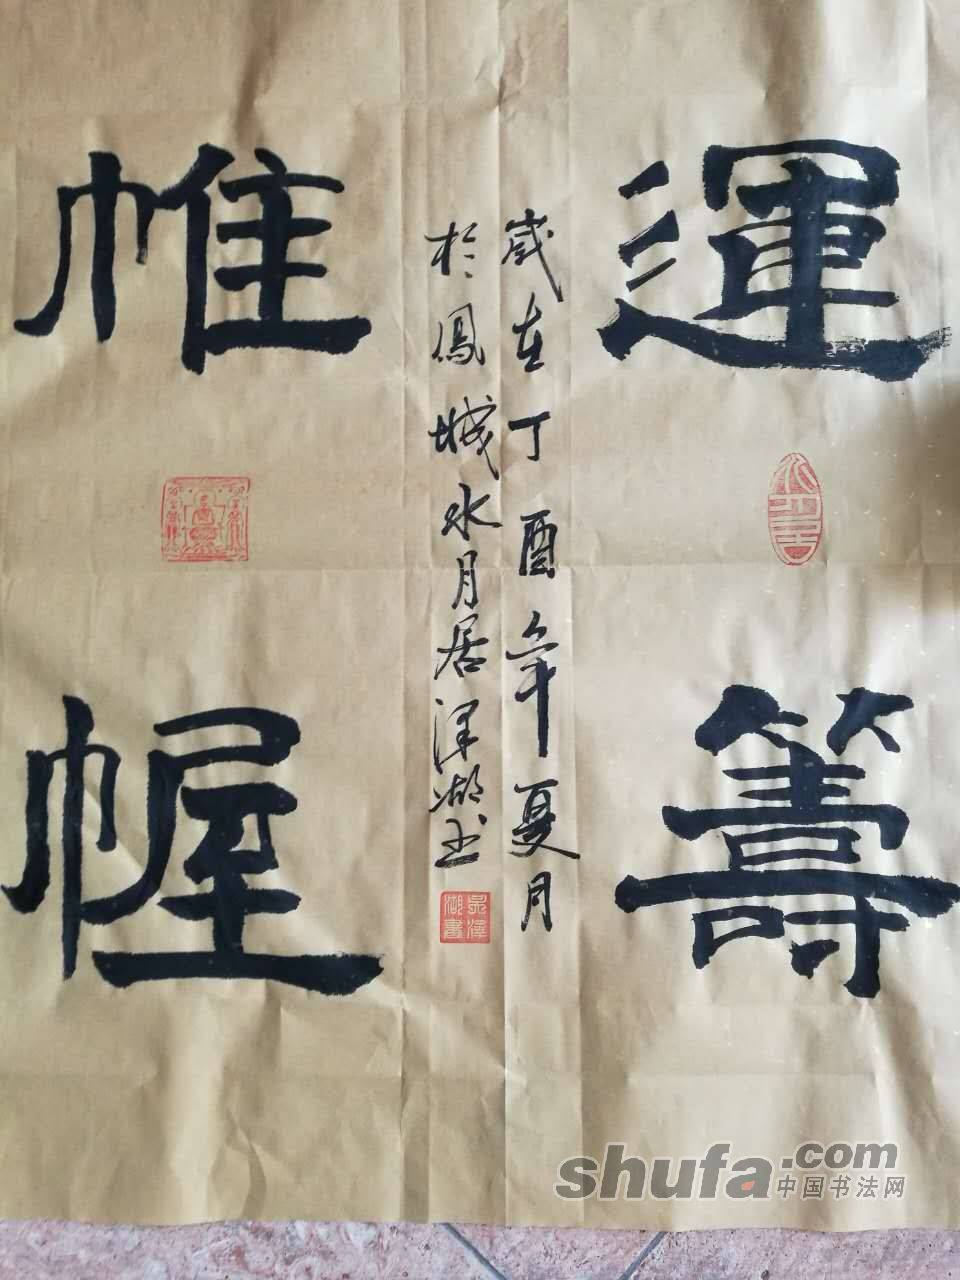 運籌
帷幄
歲在丁酉年夏月
於鳳城水月居澤湖书
shufa.com
中国书法网